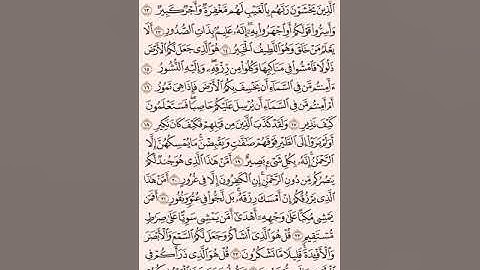 الَّذِينَ يَخْشَوْنَ رَبَّهُم بِالْغَيْبِ لَهُم مَّغْفِرَةٌ وَأَجْرٌ كَبِيرٌ ١٢
وَأَسِرُّوا قَوْلَكُمْ أَوِ اجْهَرُوا بِهِ إِنَّهُ عَلِيمٌ بِذَاتِ الصُّدُورِ ١٣ أَلَا
يَعْلَمُ مَنْ خَلَقَ وَهُوَ اللَّطِيفُ الْخَبِيرُ ١٤ هُوَ الَّذِي جَعَلَ لَكُمُ الْأَرْضَ
ذَلُولًا فَامْشُوا فِي مَنَاكِبِهَا وَكُلُوا مِن رِّزْقِهِ وَإِلَيْهِ النُّشُورُ
١٥ ءَأَمِنتُم مَّن فِي السَّمَاءِ أَن يَخْسِفَ بِكُمُ الْأَرْضَ فَإِذَا هِيَ تَمُورُ
١٦ أَمْ أَمِنتُم مَّن فِي السَّمَاءِ أَن يُرْسِلَ عَلَيْكُمْ حَاصِبًا فَسَتَعْلَمُونَ
كَيْفَ نَذِيرِ ١٧ وَلَقَدْ كَذَّبَ الَّذِينَ مِن قَبْلِهِمْ فَكَيْفَ كَانَ نَكِيرِ ١٨
أَوَلَمْ يَرَوْا إِلَى الطَّيْرِ فَوْقَهُمْ صَافَّاتٍ وَيَقْبِضْنَ مَا يُمْسِكُهُنَّ إِلَّا
الرَّحْمَٰنُ إِنَّهُ بِكُلِّ شَيْءٍ بَصِيرٌ ١٩ أَمَّنْ هَٰذَا الَّذِي هُوَ جُندٌ لَّكُمْ
يَنصُرُكُم مِّن دُونِ الرَّحْمَٰنِ إِنِ الْكَافِرُونَ إِلَّا فِي غُرُورٍ ٢٠ أَمَّنْ هَٰذَا
الَّذِي يَرْزُقُكُمْ إِنْ أَمْسَكَ رِزْقَهُ بَل لَّجُّوا فِي عُتُوٍّ وَنُفُورٍ ٢١ أَفَمَن
يَمْشِي مُكِبًّا عَلَىٰ وَجْهِهِ أَهْدَىٰ أَمَّن يَمْشِي سَوِيًّا عَلَىٰ صِرَاطٍ
مُّسْتَقِيمٍ ٢٢ قُلْ هُوَ الَّذِي أَنشَأَكُمْ وَجَعَلَ لَكُمُ السَّمْعَ وَالْأَبْصَارَ
وَالْأَفْئِدَةَ قَلِيلًا مَّا تَشْكُرُونَ ٢٣ قُلْ هُوَ الَّذِي ذَرَأَكُمْ فِي